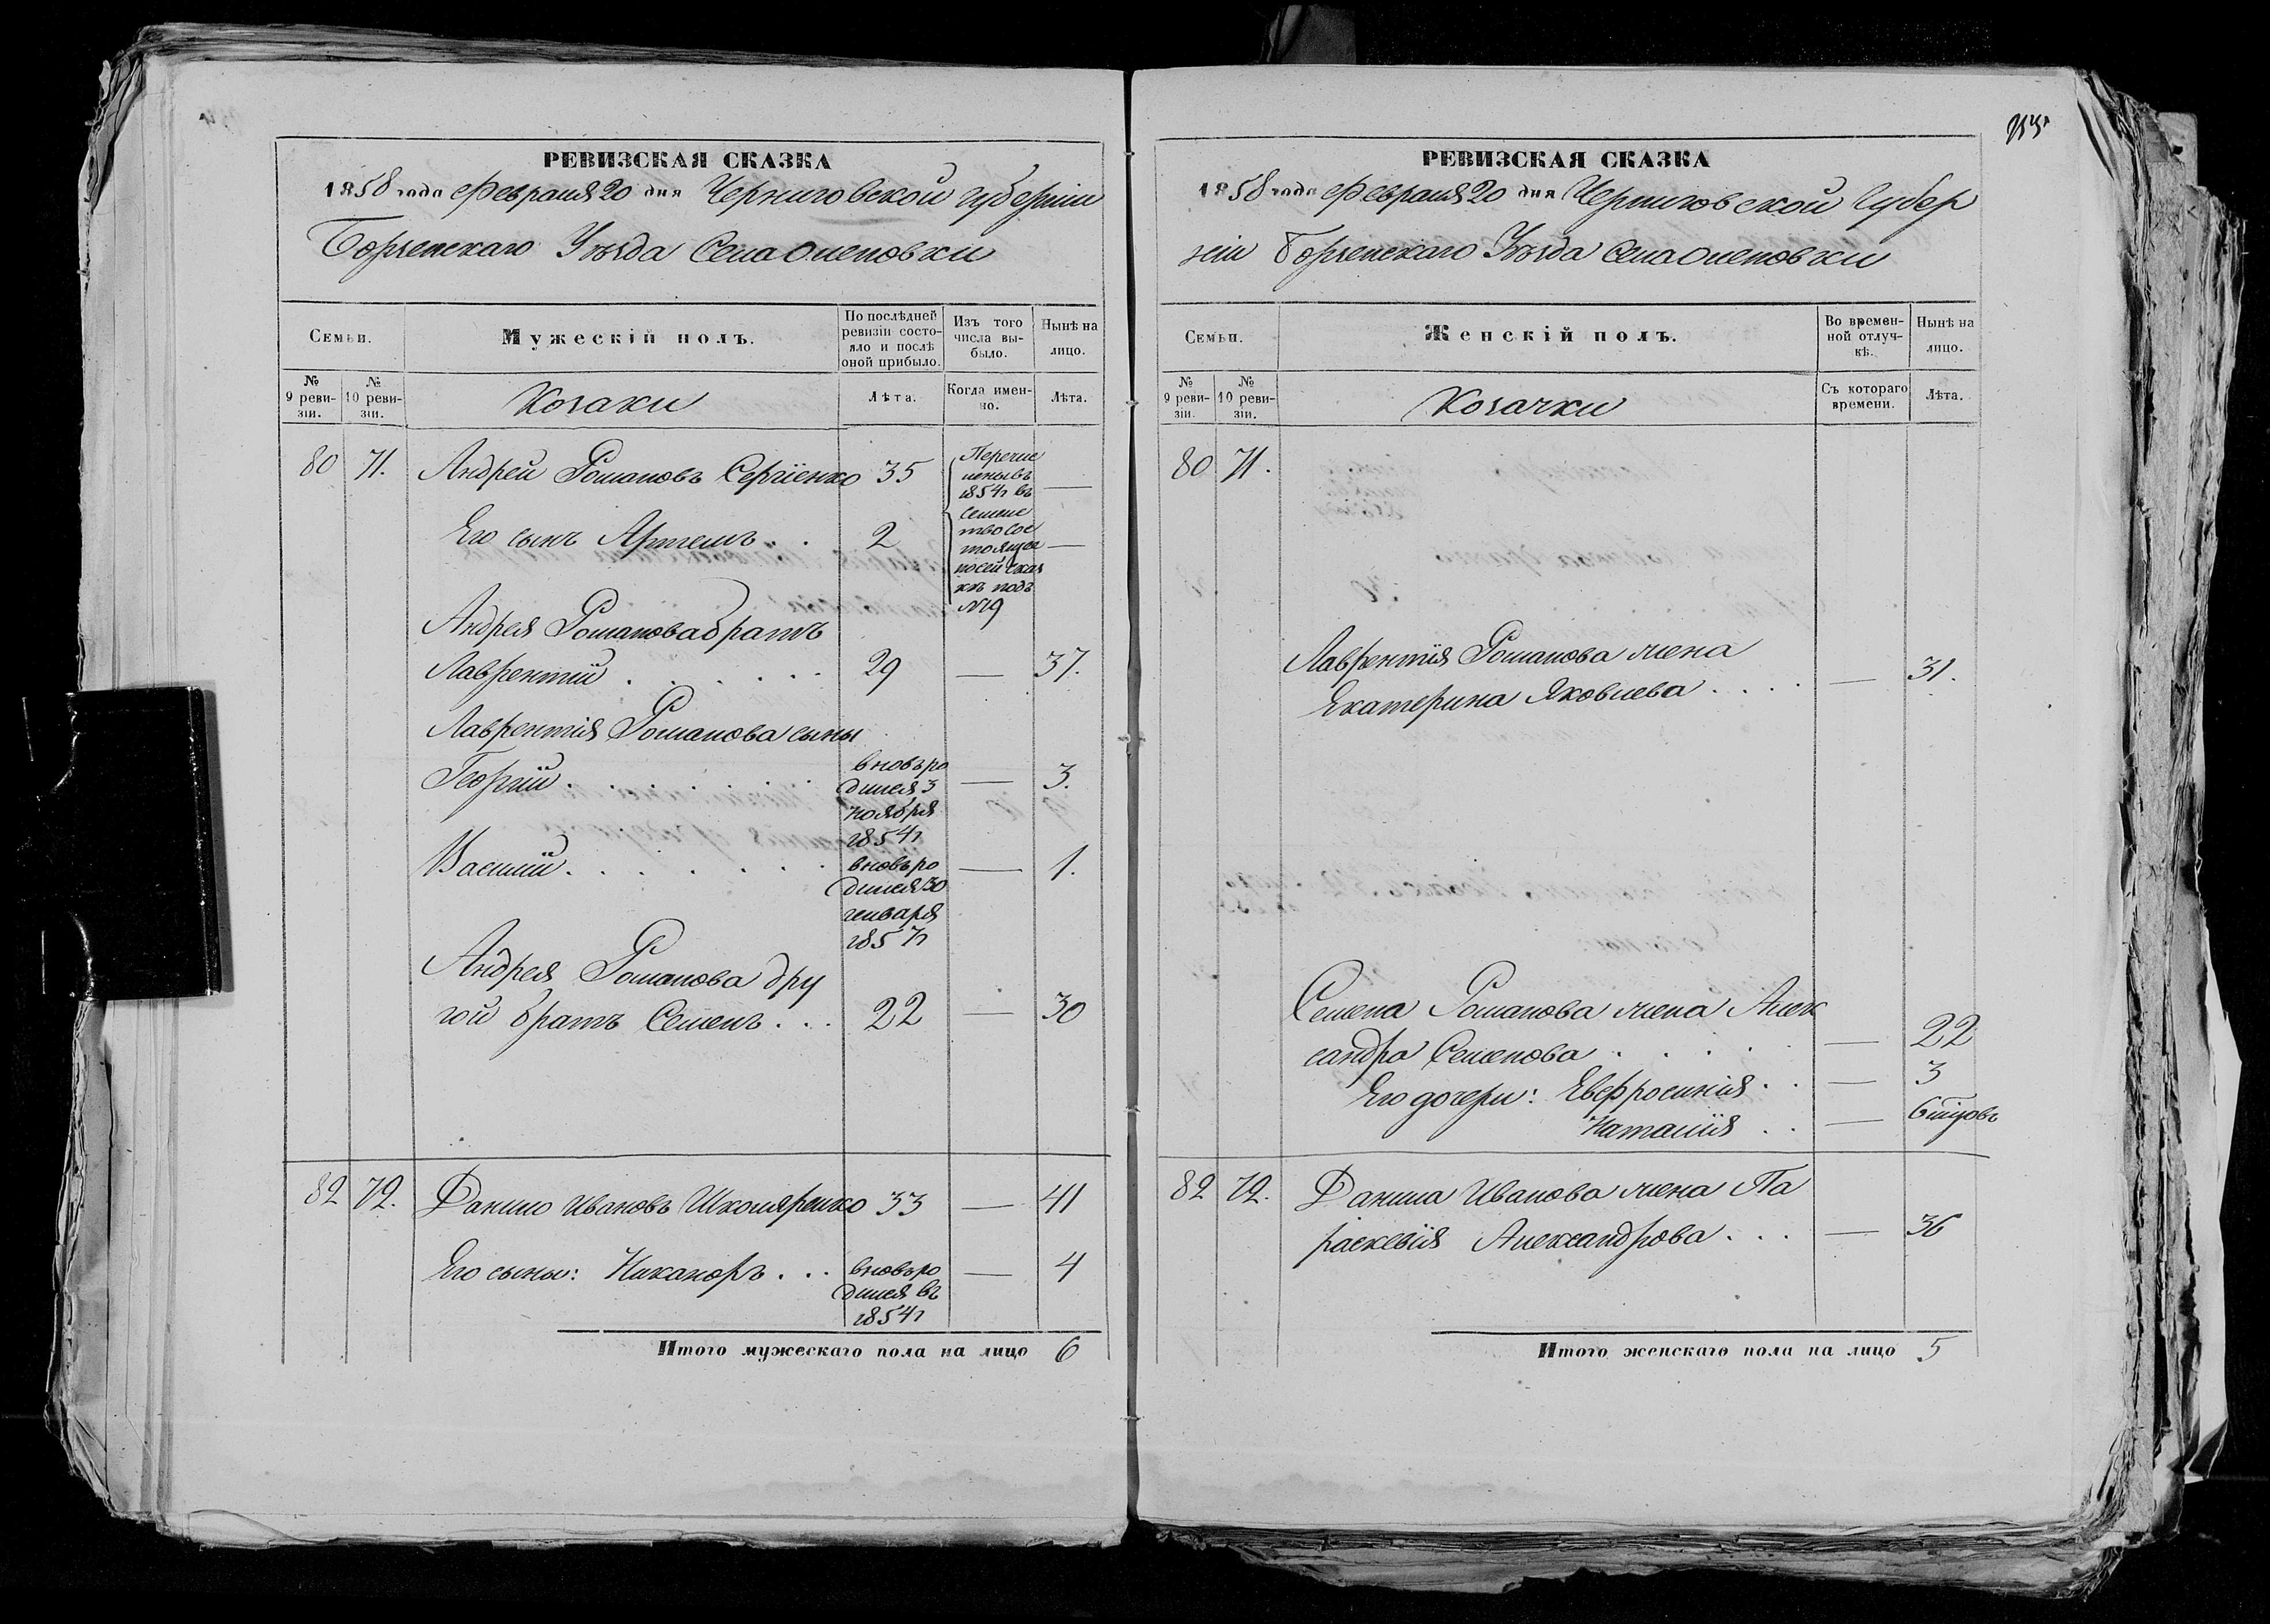 РЕВИЗСКАЯ СКАЗКА
1858 года Февраля 20 дня Черниговской губернiи
Борзенскаго Уѣзда Села Оленовки
Семьи.
Мужескiй полъ.
По послѣдней ревизiи состояло и послѣ оной прибыло.
Изъ того числа выбыло.
Нынѣ на лицо.
№ 9 ревизiи.
№ 10 ревизiи.
Козаки
Лѣта.
Когда именно.
Лѣта.
80 71. Андрей Романовъ Сергiенко 35 —
Его сынъ Артемъ . 2 —
Перечис
лены въ
1854 г въ
семейс
тво сос
тоящее
по сей сказ
кѣ подъ
№ 19
Андрея Романова братъ
Лаврентiй . . . . . . 29 — 37.
Лаврентiя Романова сыны
Георгiй . . . . . . вновь ро — 3.
дился 3
ноября
1854 г
Василiй . . . . . . вновь ро — 1.
дился 30
генваря
1857 г
Андрея Романова дру
гой братъ Семенъ . . . 22 — 30
82 72. Данило Ивановъ Школяренко 33 — 41
Его сыны: Никаноръ . . . вновь ро — 4
дился въ
1854 г
Итого мужескаго пола на лицо 6
РЕВИЗСКАЯ СКАЗКА
1858 года Февраля 20 дня Черниговской Губер
нiи Борзенскаго Уѣзда Села Оленовки
Семьи.
Женскiй полъ.
Во временной отлучкѣ.
Нынѣ на лицо.
№ 9 ревизiи.
№ 10 ревизiи.
Козачки
Съ котораго времени.
Лѣта.
80 71.
Лаврентiя Романова жена
Екатерина Яковлева . . . . — 31.
Семена Романова жена Алек
сандра Семенова . . . . . — 22
Его дочери: Евфросинiя . . — 3
Наталiя . . — 6 мѣсяцовъ
82 72. Данила Иванова жена Па
раскевiя Александрова . . . — 36
Итого женскаго пола на лицо 5